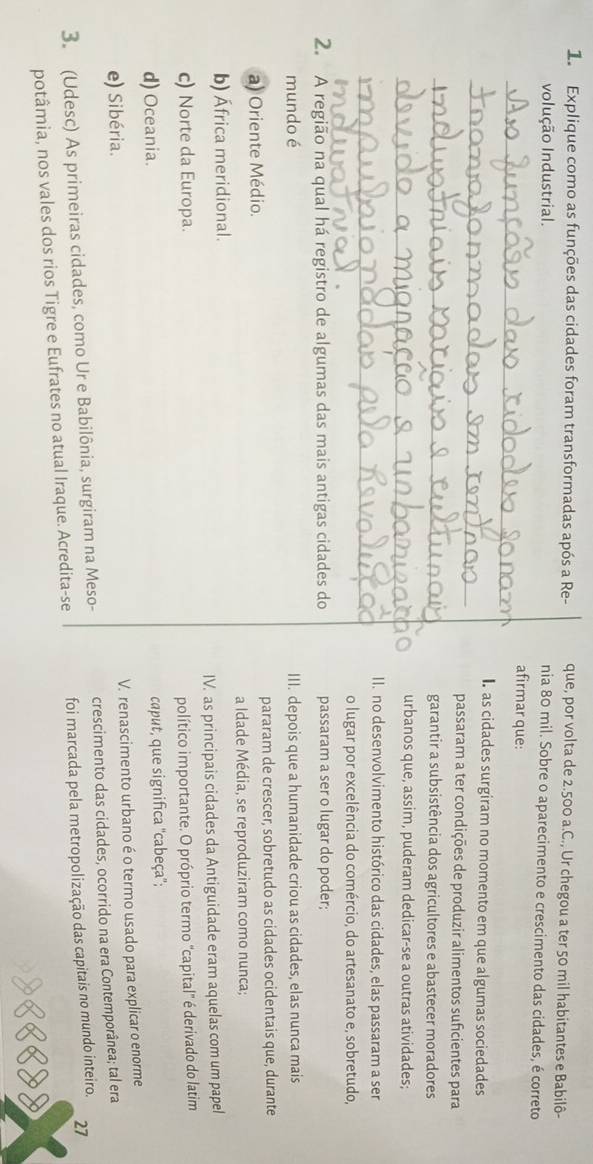 1. Explique como as funções das cidades foram transformadas após a Re-
volução Industrial.
As funções das cidades foram
transformadas em centros
industriais sociais e culturais
devido a migração e urbanização
impulsionadas pela Revolução
industrial.
2. A região na qual há registro de algumas das mais antigas cidades do
mundo é
a) Oriente Médio.
b) África meridional.
c) Norte da Europa.
d) Oceania.
e) Sibéria.
3. (Udesc) As primeiras cidades, como Ur e Babilônia, surgiram na Meso-
potâmia, nos vales dos rios Tigre e Eufrates no atual Iraque. Acredita-se
que, por volta de 2.500 a.C., Ur chegou a ter 50 mil habitantes e Babilô-
nia 80 mil. Sobre o aparecimento e crescimento das cidades, é correto
afirmar que:
I. as cidades surgiram no momento em que algumas sociedades
passaram a ter condições de produzir alimentos suficientes para
garantir a subsistência dos agricultores e abastecer moradores
urbanos que, assim, puderam dedicar-se a outras atividades;
II. no desenvolvimento histórico das cidades, elas passaram a ser
o lugar por excelência do comércio, do artesanato e, sobretudo,
passaram a ser o lugar do poder;
III. depois que a humanidade criou as cidades, elas nunca mais
pararam de crescer, sobretudo as cidades ocidentais que, durante
a Idade Média, se reproduziram como nunca;
IV. as principais cidades da Antiguidade eram aquelas com um papel
político importante. O próprio termo "capital" é derivado do latim
caput, que significa "cabeça";
V. renascimento urbano é o termo usado para explicar o enorme
crescimento das cidades, ocorrido na era Contemporânea; tal era
foi marcada pela metropolização das capitais no mundo inteiro.
27